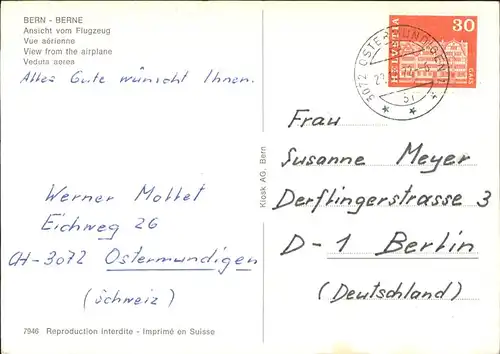 BERN - BERNE
Ansicht vom Flugzeug
Vue aérienne
View from the airplane
Veduta aerea
Alles Gute wünscht Ihnen.
Werner Mottet
Eichweg 26
CH-3072 Ostermundigen
(Schweiz)
7946 Reproduction interdite - Imprimé en Suisse
Kiosk AG, Bern
3072 OSTERMUNDIGEN 1
HELVETIA
30
GAIS
Frau
Susanne Meyer
Derflingerstrasse 3
D-1 Berlin
(Deutschland)